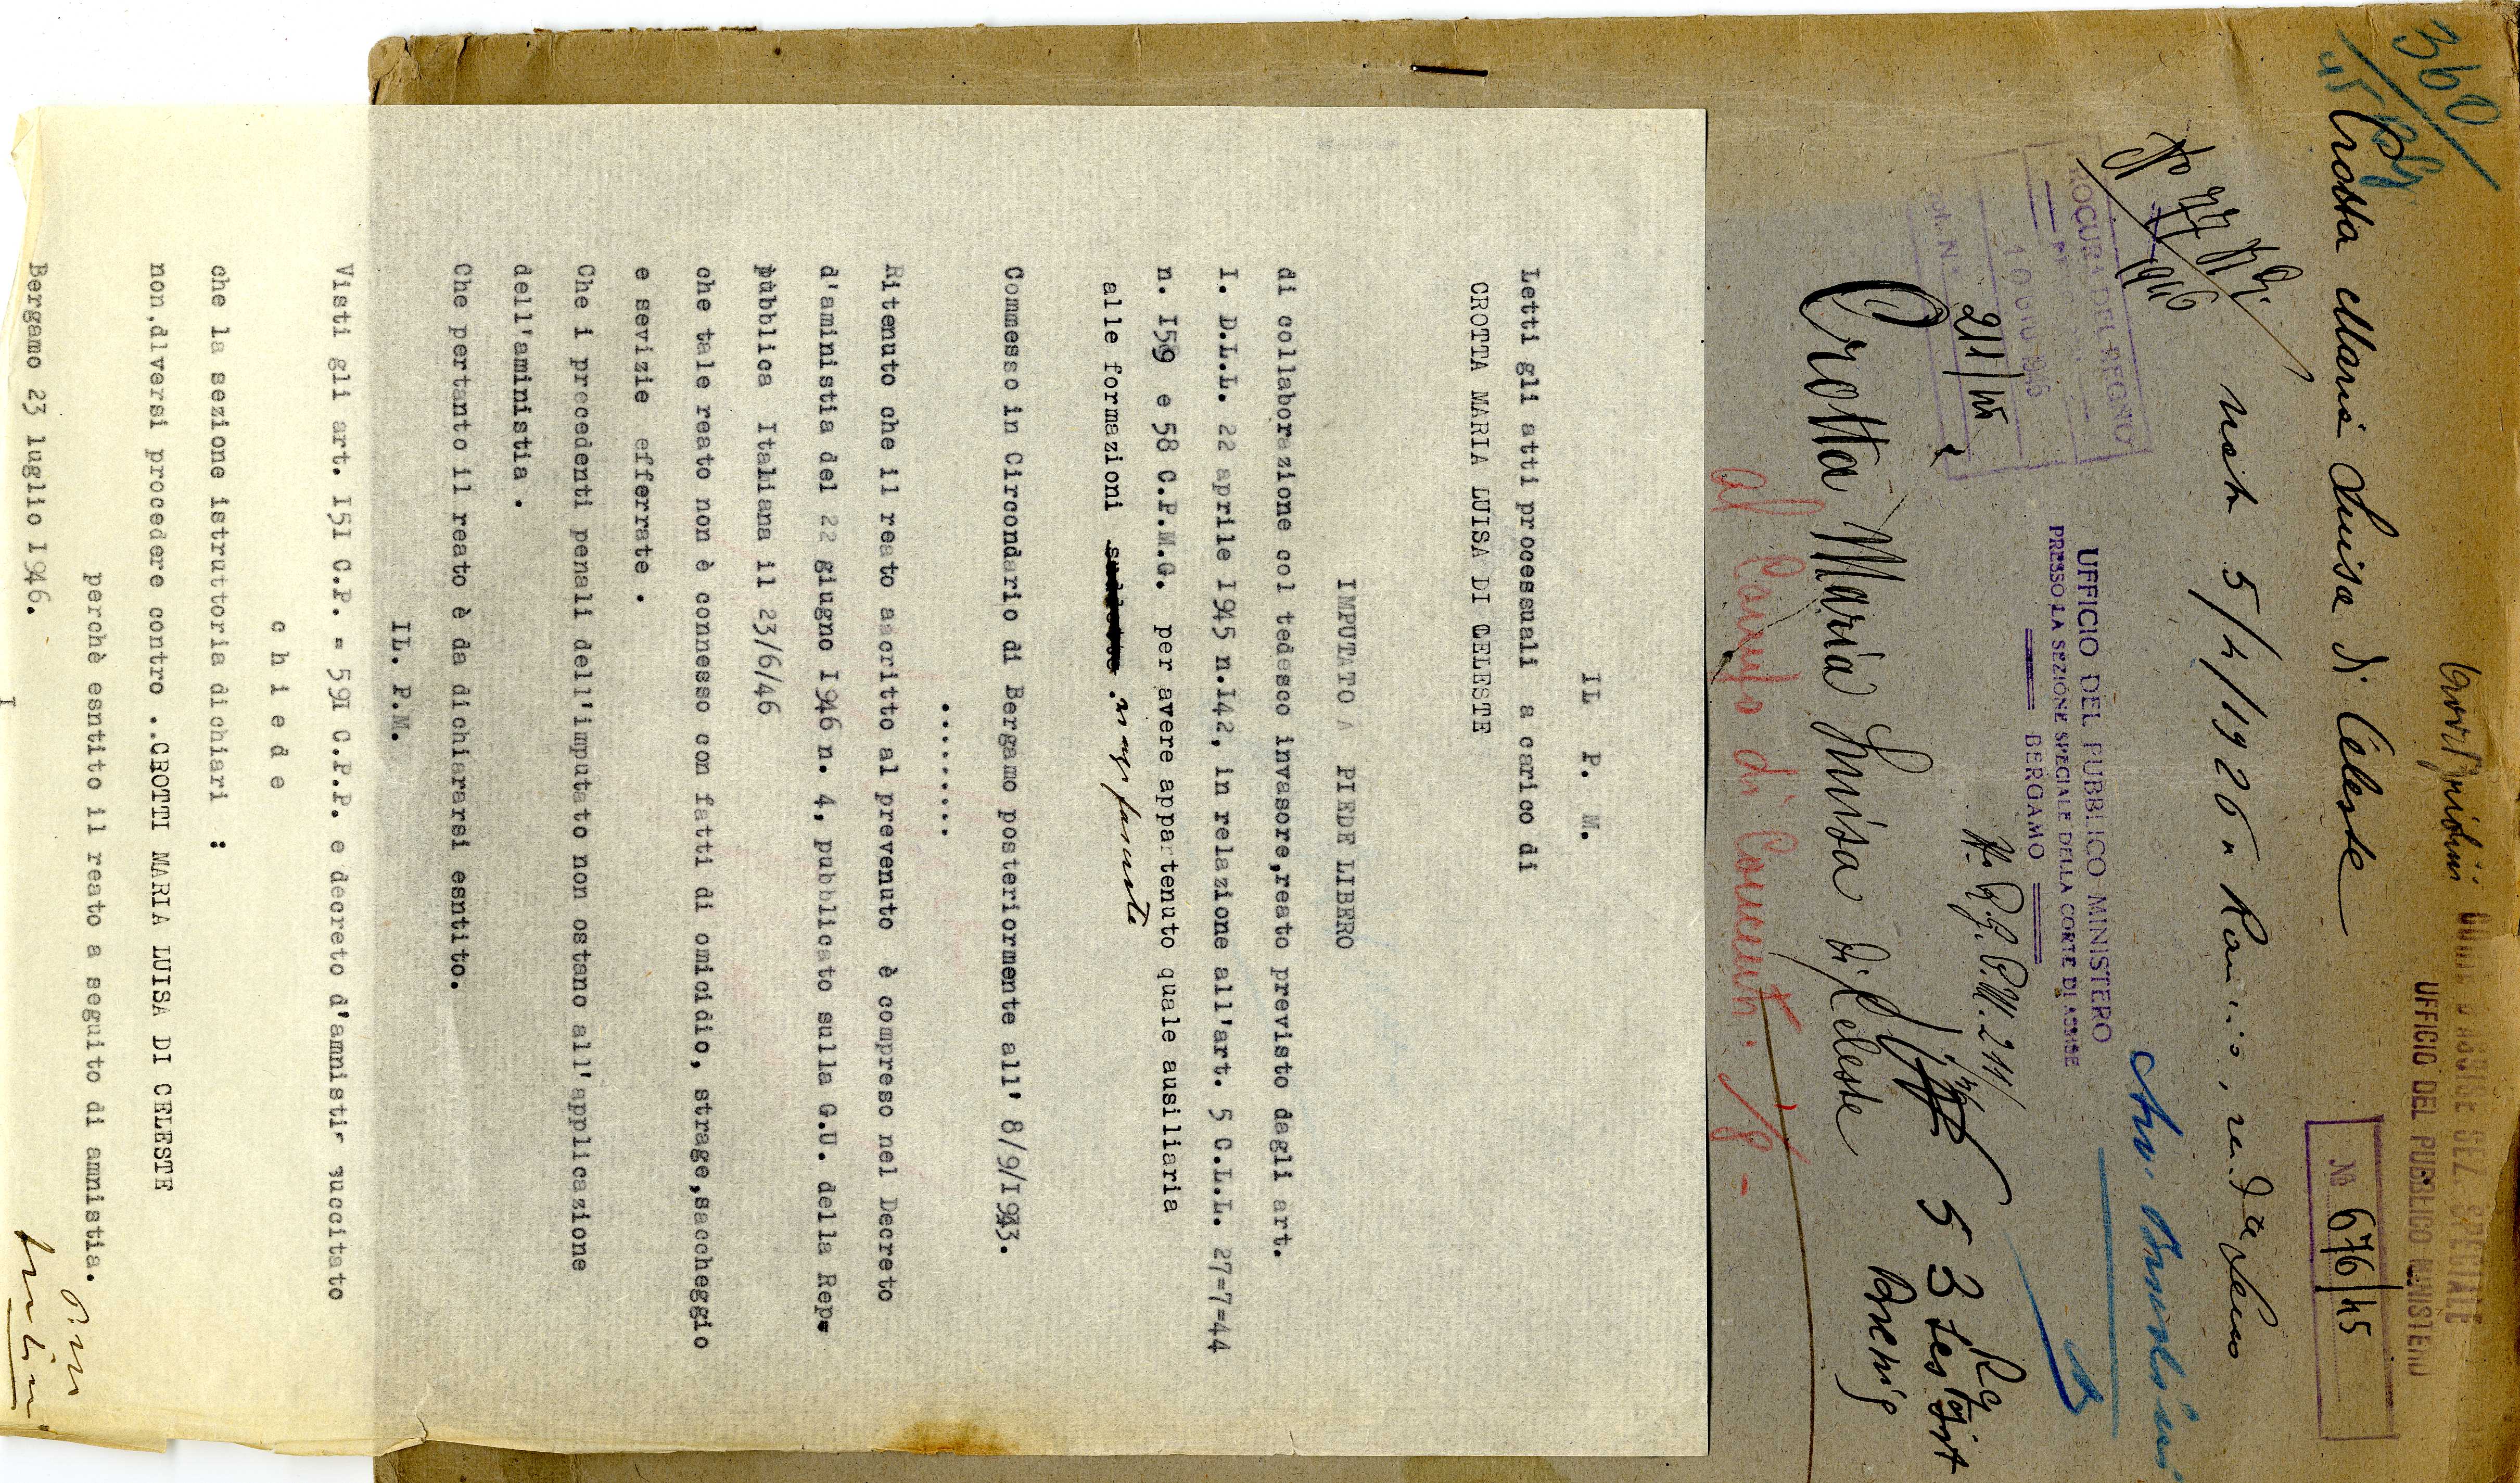 360
45
CORTE D'ASSISE SEZ. SPECIALE
UFFICIO DEL PUBBLICO MINISTERO
Nº 676/45
Crotta Maria Luisa di Celeste
nata 5/4/1926 a
1946
PROCURA DEL REGNO
10 GIU 1946
UFFICIO DEL PUBBLICO MINISTERO
PRESSO LA SEZIONE SPECIALE DELLA CORTE DI ASSISE
BERGAMO
211/45
N. R.G. P.M. 211/
Crotta Maria Luisa di Celeste
al Campo di
IL P. M.
Letti gli atti processuali a carico di
CROTTA MARIA LUISA DI CELESTE
IMPUTATO A PIEDE LIBERO
di collaborazione col tedesco invasore,reato previsto dagli art.
I. D.L.L. 22 aprile I945 n.I42, in relazione all'art. 5 C.L.L. 27=7=44
n. I59 e 58 C.P.M.G. per avere appartenuto quale ausiliaria
alle formazioni
Commesso in Circondario di Bergamo posteriormente all' 8/9/I943.
........
Ritenuto che il reato aacritto al prevenuto è compreso nel Decreto
d'aministia del 22 giugno I946 n. 4, pubblicato sulla G.U. della Rep=
pubblica Italiana il 23/6/46
che tale reato non è connesso con fatti di omicidio, strage,saccheggio
e sevizie efferrate .
Che i precedenti penali dell'imputato non ostano all'applicazione
dell'aministia .
Che pertanto il reato è da dichiararsi esntito.
IL. P.M.
Visti gli art. I5I C.P. = 59I C.P.P. e decreto d'amnisti succitato
c h i e d e
che la sezione istruttoria dichiari :
non,dlversi procedere contro ..CROTTI MARIA LUISA DI CELESTE
perchè esntito il reato a seguito di amnistia.
Bergamo 23 luglio I946.
P.M.